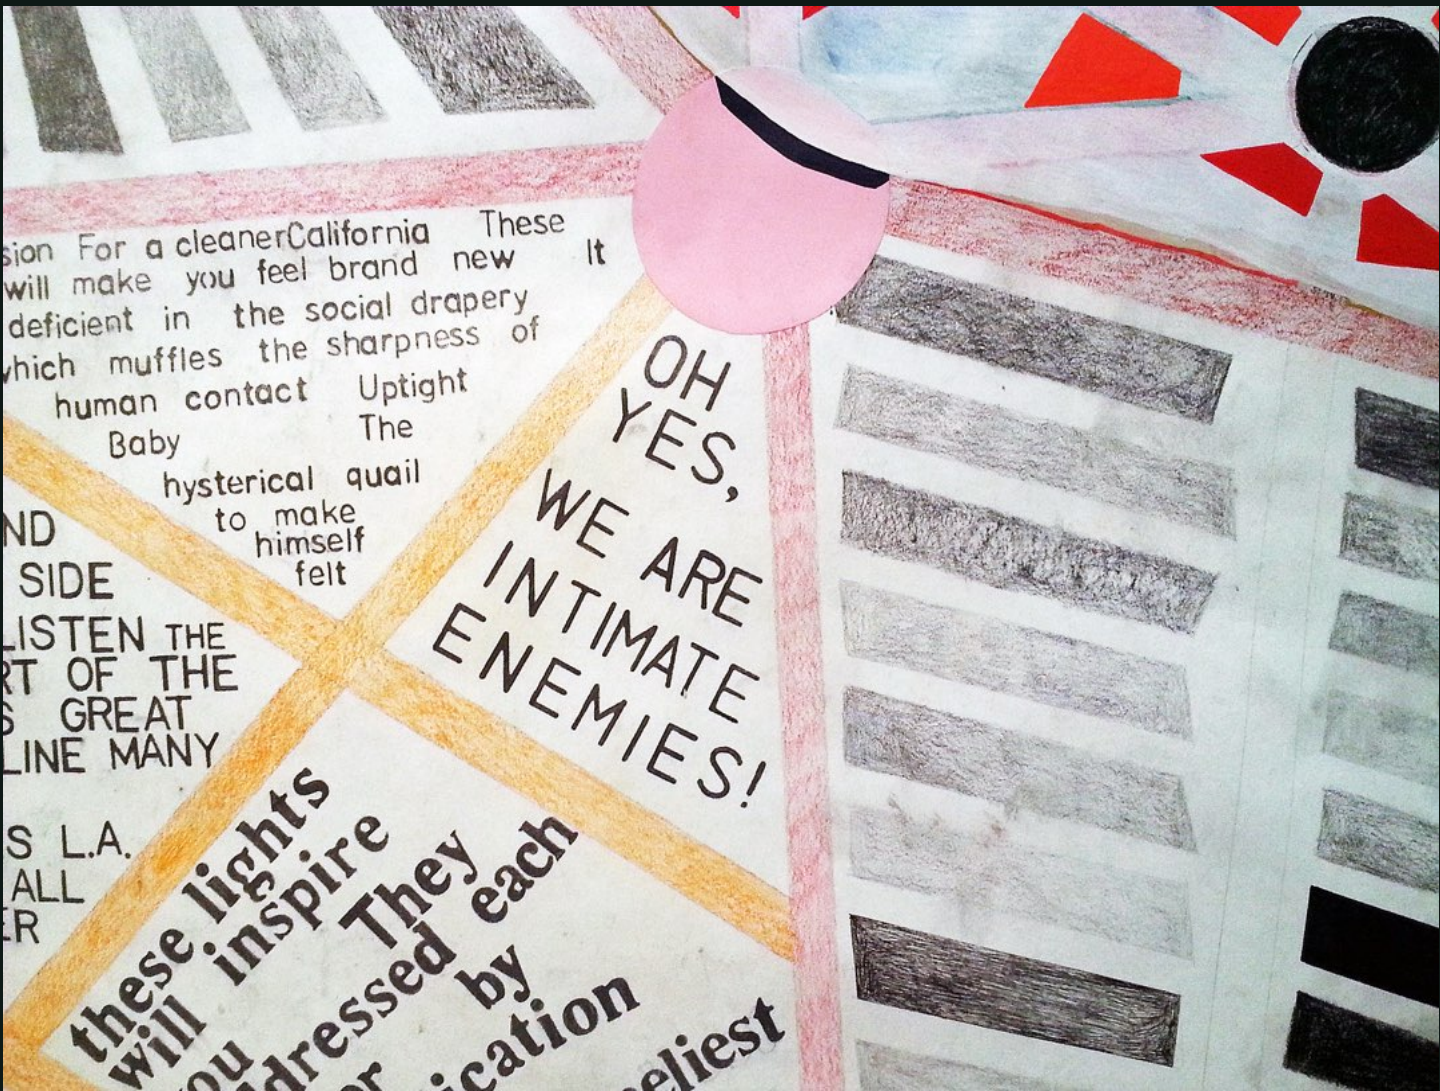 sion For a cleanerCalifornia These
will make you feel brand new It
deficient in the social drapery
which muffles the sharpness of
human contact Uptight
Baby The
hysterical quail
to make
himself
felt
OH
YES,
WE ARE
INTIMATE
ENEMIES!
ND
SIDE
LISTEN THE
RT OF THE
S GREAT
LINE MANY
S L.A.
ALL
ER
these lights
will inspire
you They
dressed each
or by
ication
eliest